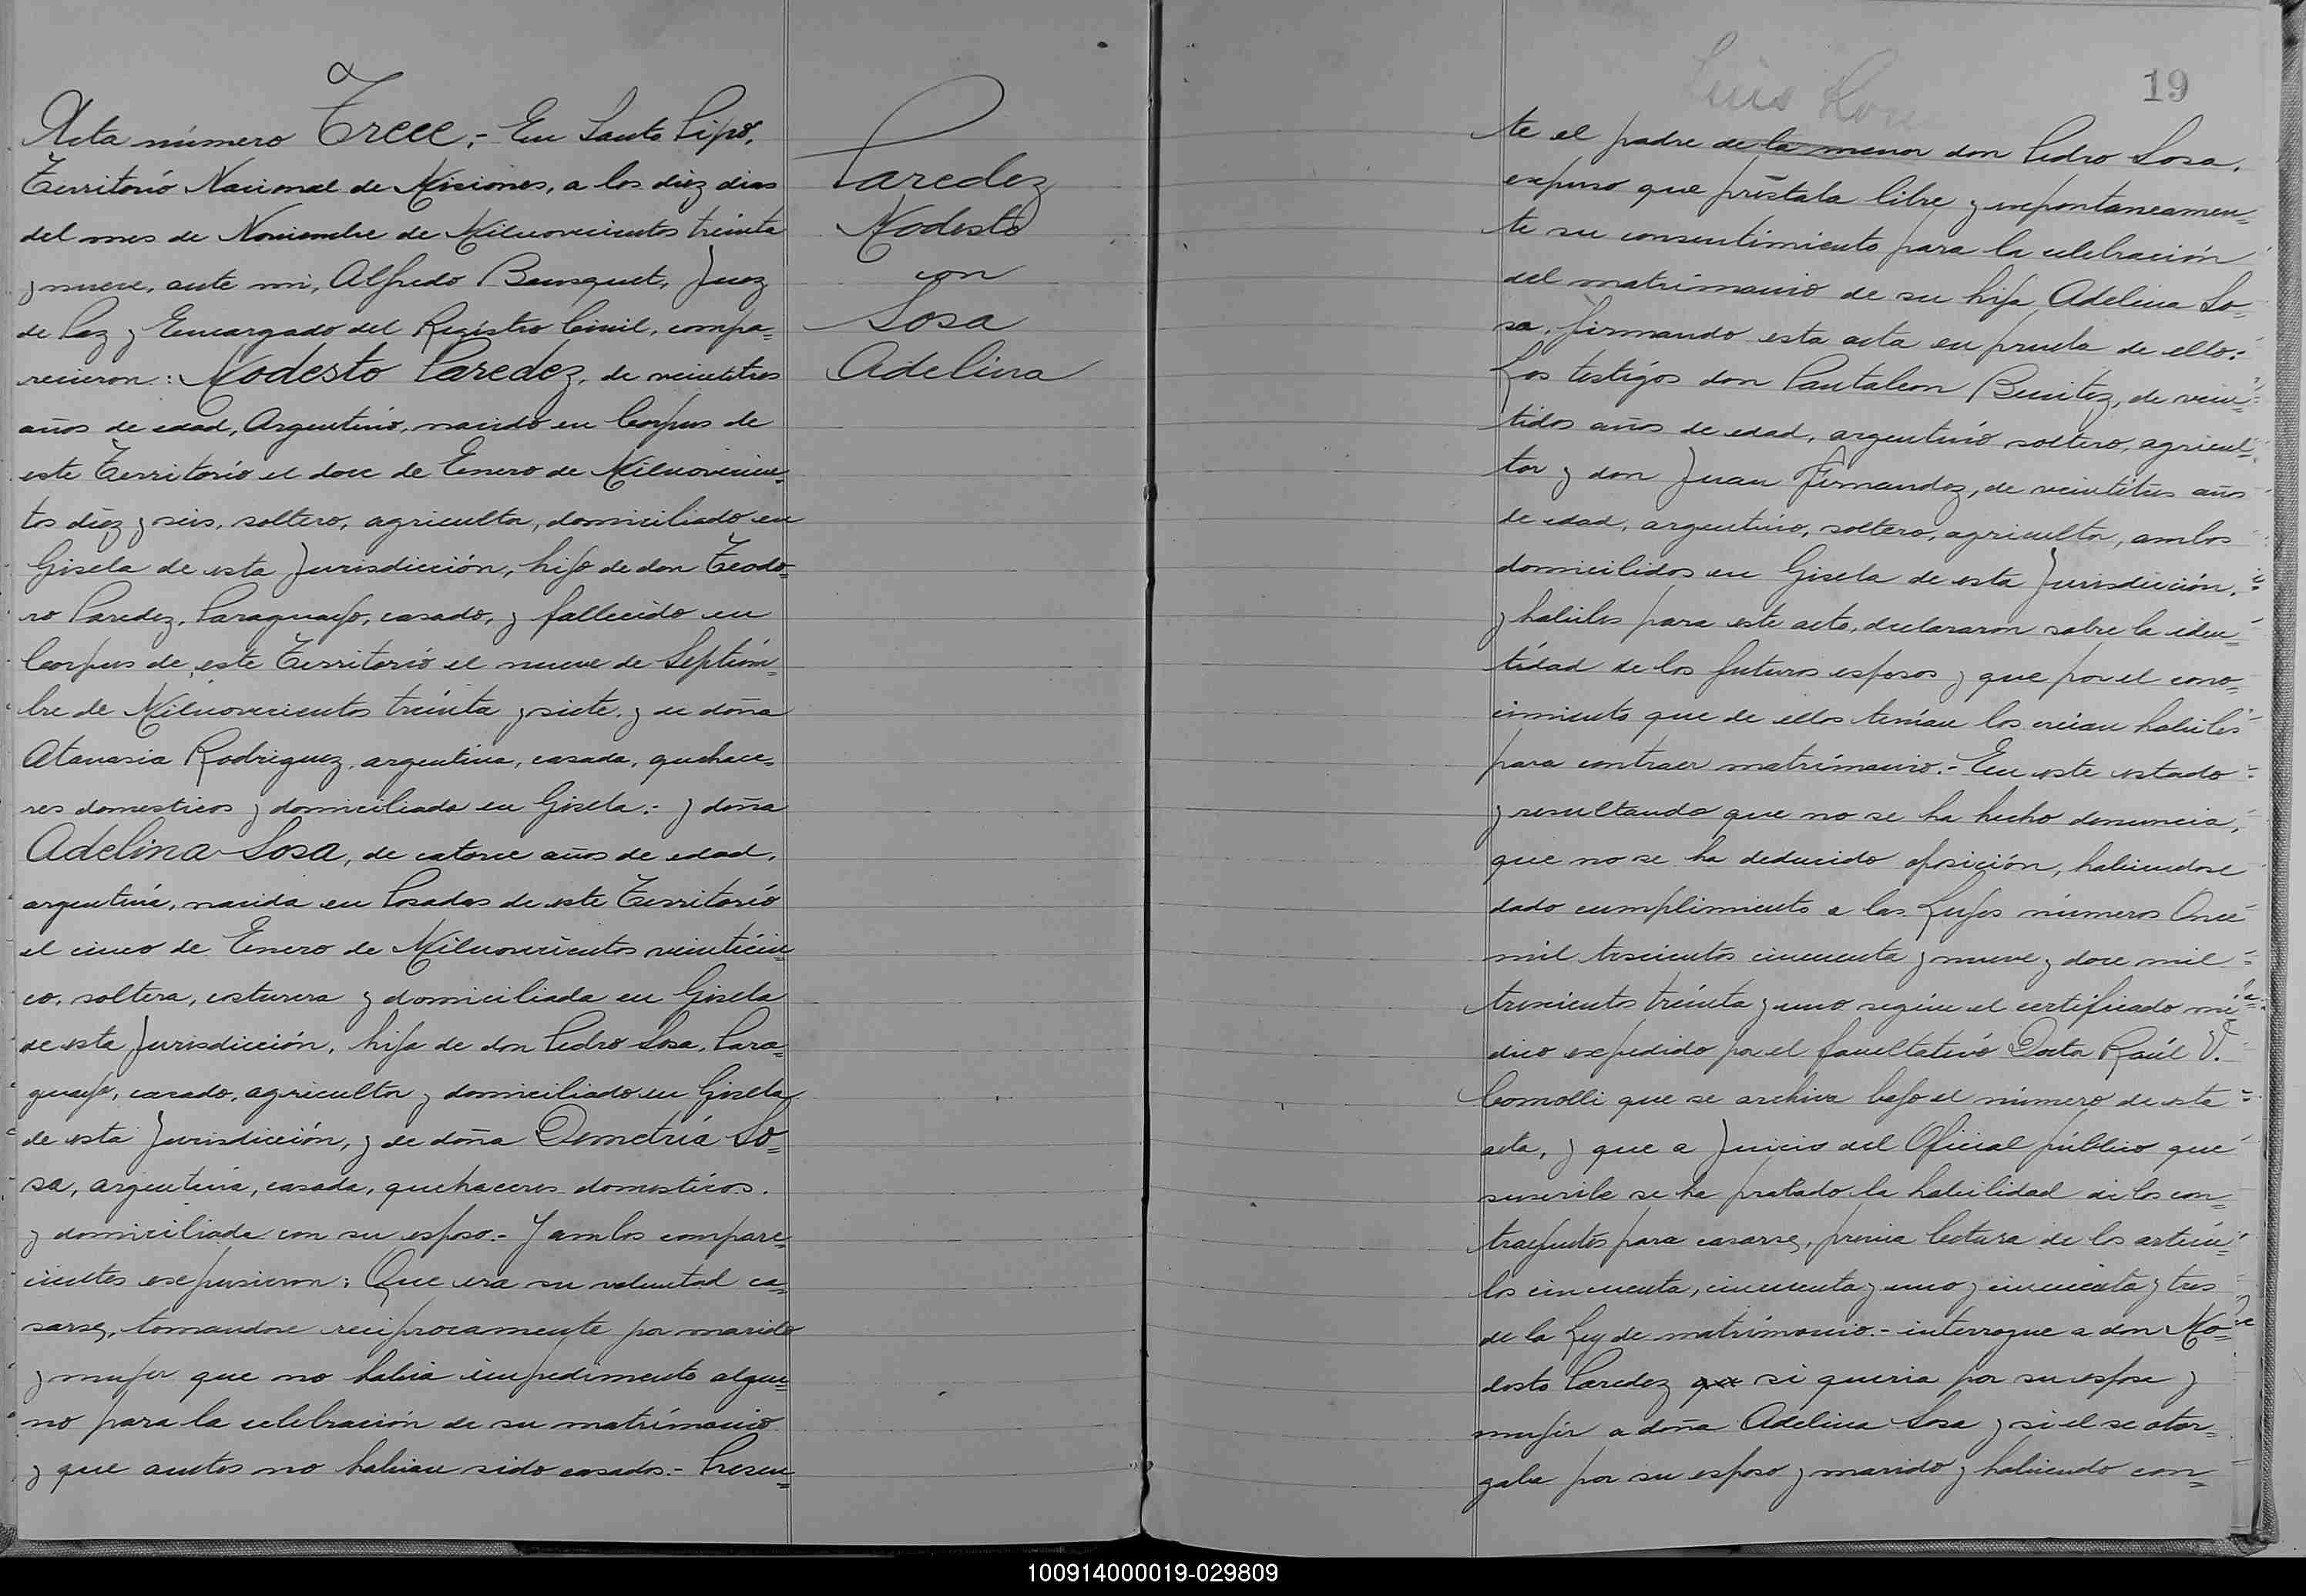 Acta número Trece.- En Santo Pipó,
Territorio Nacional de Misiones, a los diez dias
del mes de Noviembre de Milnovecientos treinta
y nueve, ante mi, Alfredo Bousquet, Juez
de Paz y Encargado del Registro Civil, compa=
recieron: Modesto Paredez, de veintitres
años de edad, Argentino, nacido en Corpus de
este Territorio el doce de Enero de Milnovecien=
tos diez y seis, soltero, agricultor, domiciliado en
Gisela de esta Jurisdicción, hijo de don Teodo=
ro Paredez, Paraguayo, casado, y fallecido en
Corpus de este Territorio el nueve de Septiem=
bre de Milnovecientos treinta y siete, y de doña
Atanasia Rodriguez, argentina, casada, quehace=
res domesticos y domiciliada en Gisela.- y doña
Adelina Sosa, de catorce años de edad,
argentina, nacida en Posadas de este Territorio
el cinco de Enero de Milnovecientos veinticin=
co, soltera, costurera y domiciliada en Gisela
de esta Jurisdicción, hija de don Pedro Sosa, Para=
guayo, casado, agricultor y domiciliado en Gisela
de esta Jurisdicción, y de doña Demetria So=
sa, argentina, casada, quehaceres domesticos,
y domiciliada con su esposo.- Y ambos compare=
cientes expusieron: Que era su voluntad ca=
sarse, tomandose reciprocamente por marido
y mujer que no habia impedimento algu=
no para la celebración de su matrimonio
y que antes no habian sido casados.- Presen=
Paredez
Modesto
con
Sosa
Adelina
Luis
19
te el padre de la menor don Pedro Sosa,
expuso que préstaba libre y expontaneamen=
te su consentimiento para la celebración
del matrimonio de su hija Adelina So=
sa, firmando esta acta en prueba de ello.-
Los testigos don Pantaleon Benitez, de vein=
tidos años de edad, argentino soltero, agricul=
tor y don Juan Fernandez, de veintitres años
de edad, argentino, soltero, agricultor, ambos
domicilidos en Gisela de esta Jurisdicción,
y habiles para este acto, declararon sobre la iden=
tidad de los futuros esposos y que por el cono=
cimiento que de ellos tenian los creian habiles
para contraer matrimonio.- En este estado
y resultando que no se ha hecho denuncia,
que no se ha deducido oposición, habiendose
dado cumplimiento a las Leyes números Once
mil trescientos cincuenta y nueve y doce mil
trescientos treinta y uno según el certificado mé=
dico expedido por el facultativo Doctor Raúl V.
Comolli que se archiva bajo el número de esta
acta, y que a Juicio del Oficial público que
suscribe se ha probado la habilidad de los con=
trayentes para casarse, previa lectura de los articu=
los cincuenta, cincuenta y uno y cincuenta y tres
de la Ley de matrimonio.- interrogue a don Mo=
desto Paredez que si queria por su esposa y
mujer a doña Adelina Sosa y si el se otor=
gaba por su esposo y marido y habiendo con=
100914000019-029809